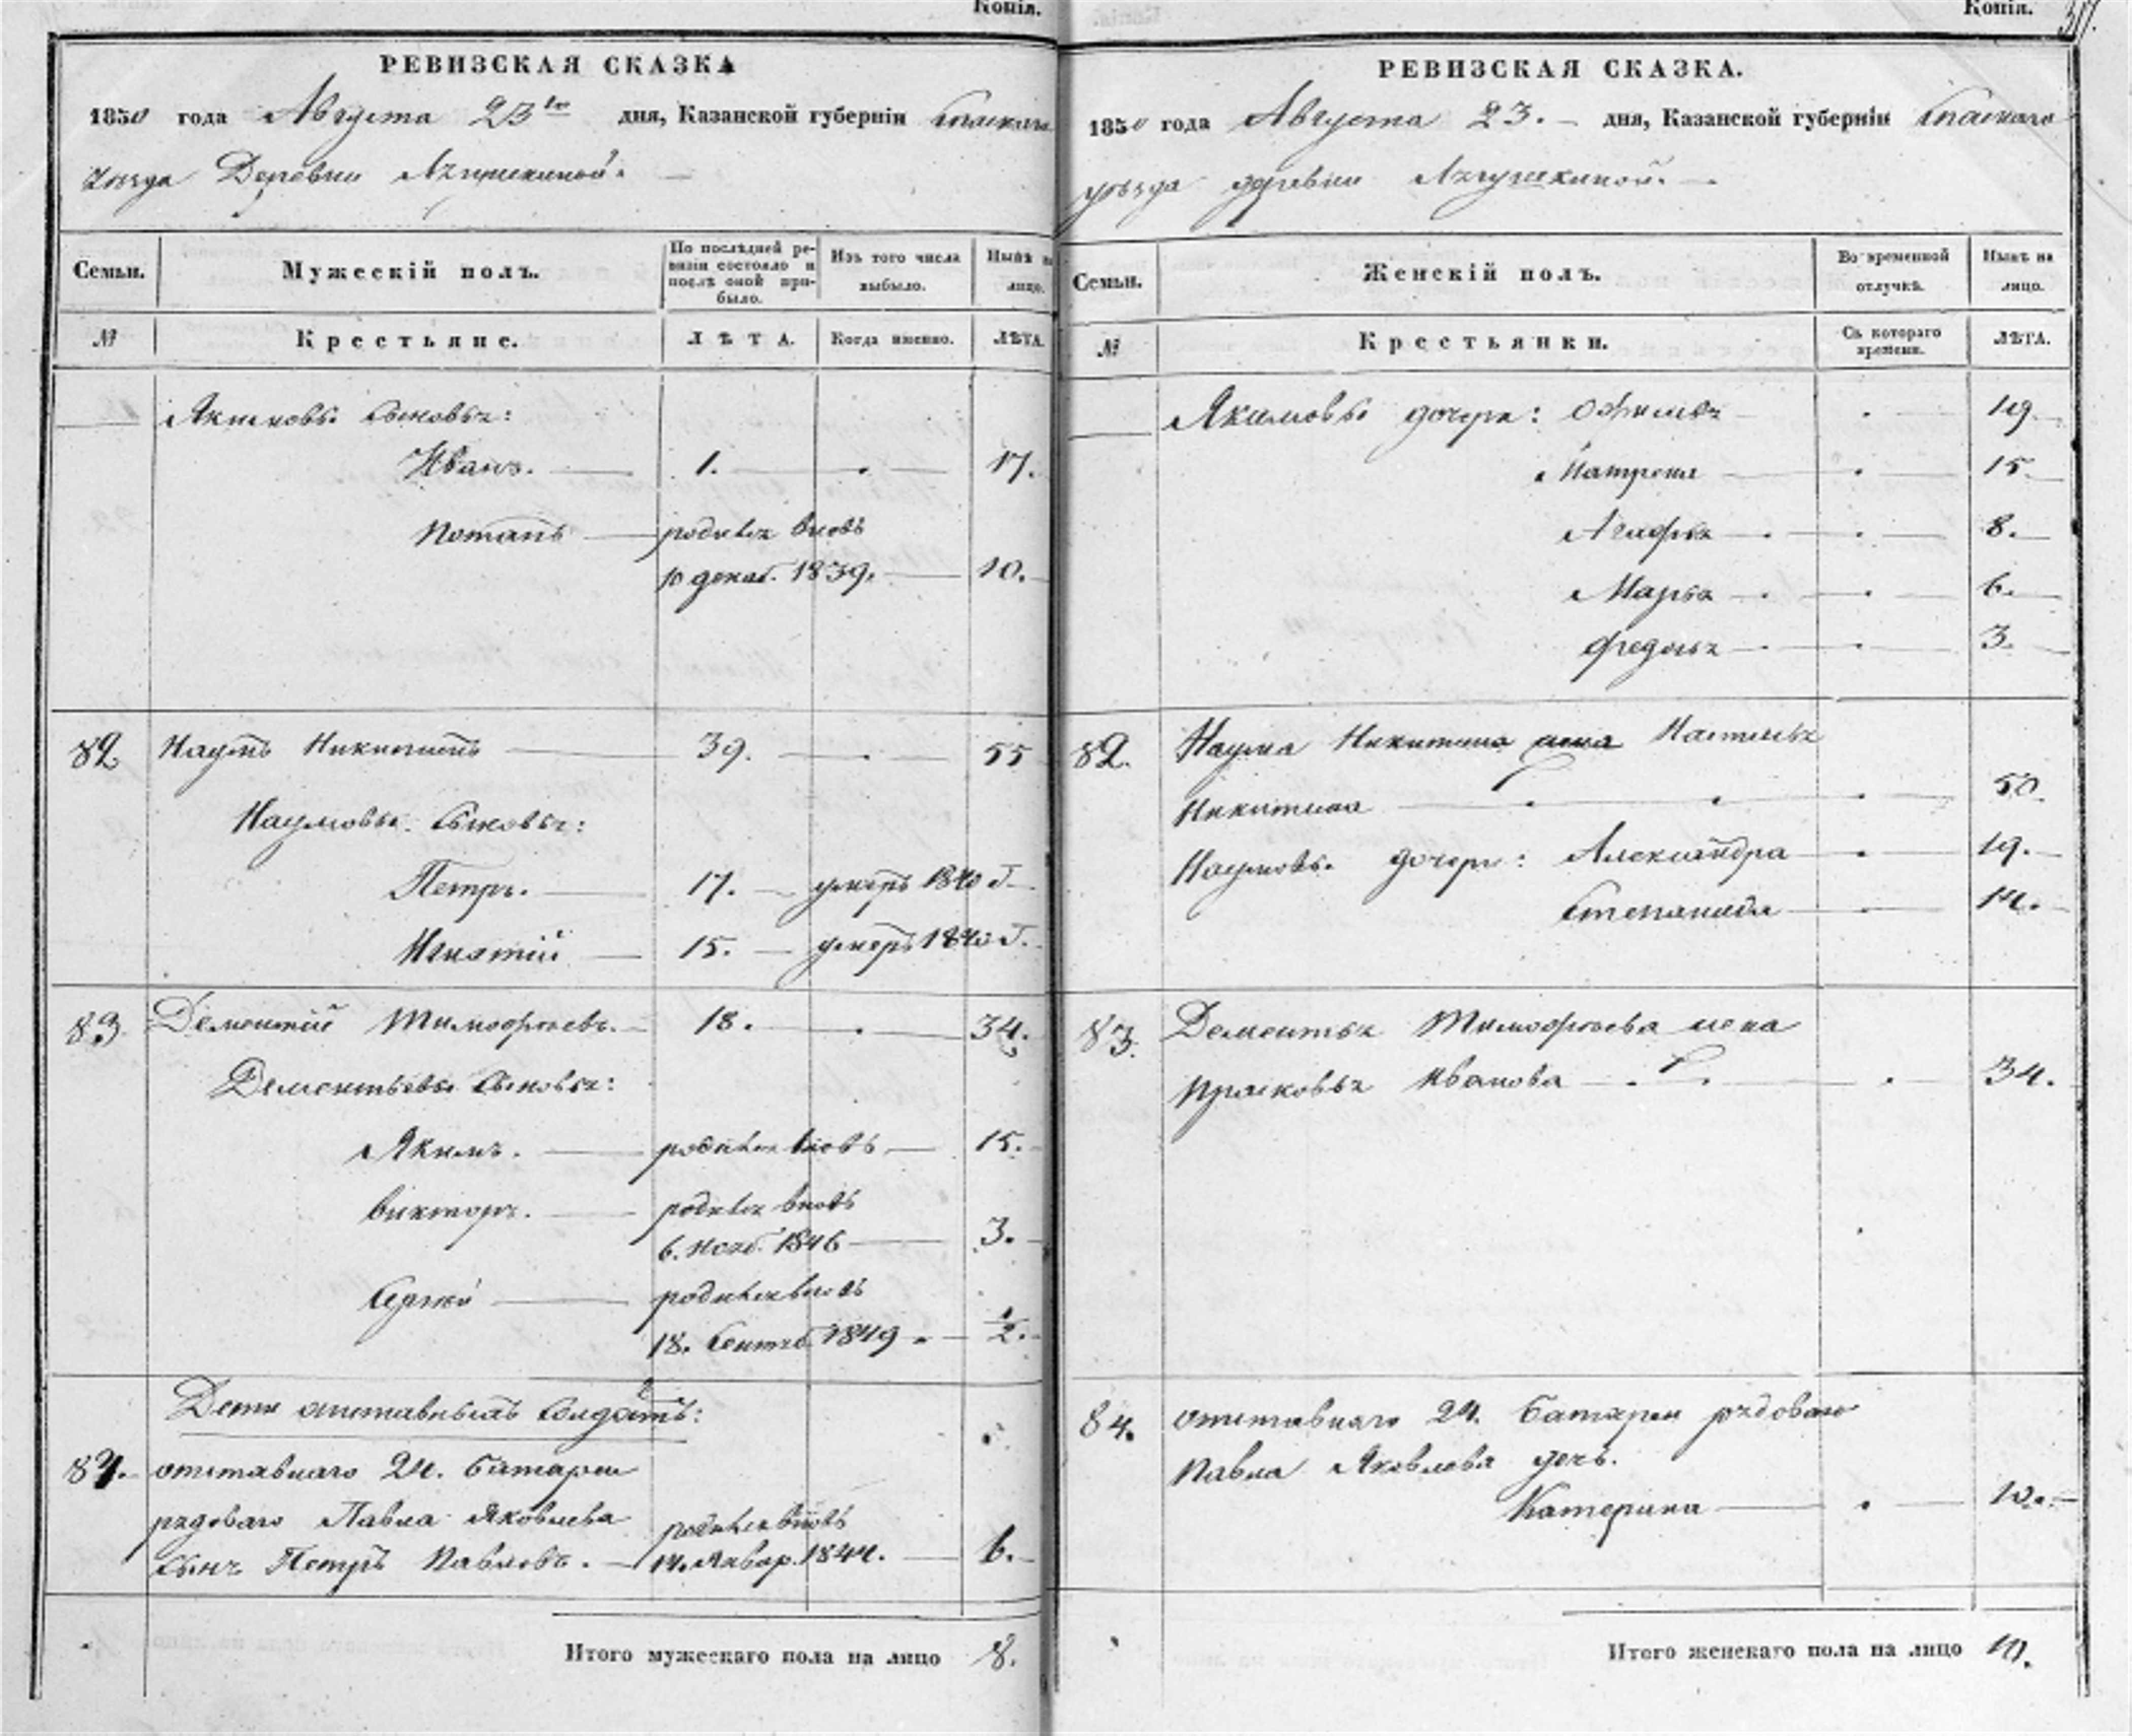 Копія.
РЕВИЗСКАЯ СКАЗКА
1850 года Августа 23го дня, Казанской губерніи Спаскаго
уѣзда Деревни
Семьи.
Мужескій полъ.
По послѣдней ре-
визіи состояло и
послѣ оной при-
было.
Изъ того числа
выбыло.
Нынѣ на
лицо.
№
Крестьяне.
ЛѢТА.
Когда именно.
ЛѢТА.
Якимовы сыновья:
Иванъ. 1. 17.
Потапъ родился вновь
10 декаб. 1839. 10.
82 Наумъ Никитинъ 39. 55
Наумовы сыновья:
Петръ. 17. умеръ 1840 г.
Игнатій 15. умеръ 1840 г.
83 Дементій Тимофѣевъ. 18. 34.
Дементьевы сыновья:
Якимъ. родился вновь 15.
Викторъ. родился вновь
6. Нояб. 1846 3.
Сергей родился вновь
18. Сентяб. 1849 1/2.
Дети отставныхъ солдатъ:
84. отставнаго 24. батареи
рядоваго Павла Яковлева родился вновь
сынъ Петръ Павловъ. 14. Январ. 1844. 6.
Итого мужескаго пола на лицо 8.
Копія.
РЕВИЗСКАЯ СКАЗКА.
1850 года Августа 23. дня, Казанской губерніи Спаскаго
уѣзда деревни
Семьи.
Женскій полъ.
Во временной
отлучкѣ.
Нынѣ на
лицо.
№
Крестьянки.
Съ котораго
времени.
ЛѢТА.
Якимовы дочери: Офимья 19.
Матрена 15.
Агафья 8.
Марья 6.
Федосья 3.
82. Наума Никитина жена Настасья
Никитина 50.
Наумовы дочери: Александра 19.
Степанида 14.
83. Дементья Тимофѣева жена
Прасковья Иванова 34.
84. отставнаго 24. батареи рядоваго
Павла Яковлева дочь.
Катерина 10.
Итого женскаго пола на лицо 10.